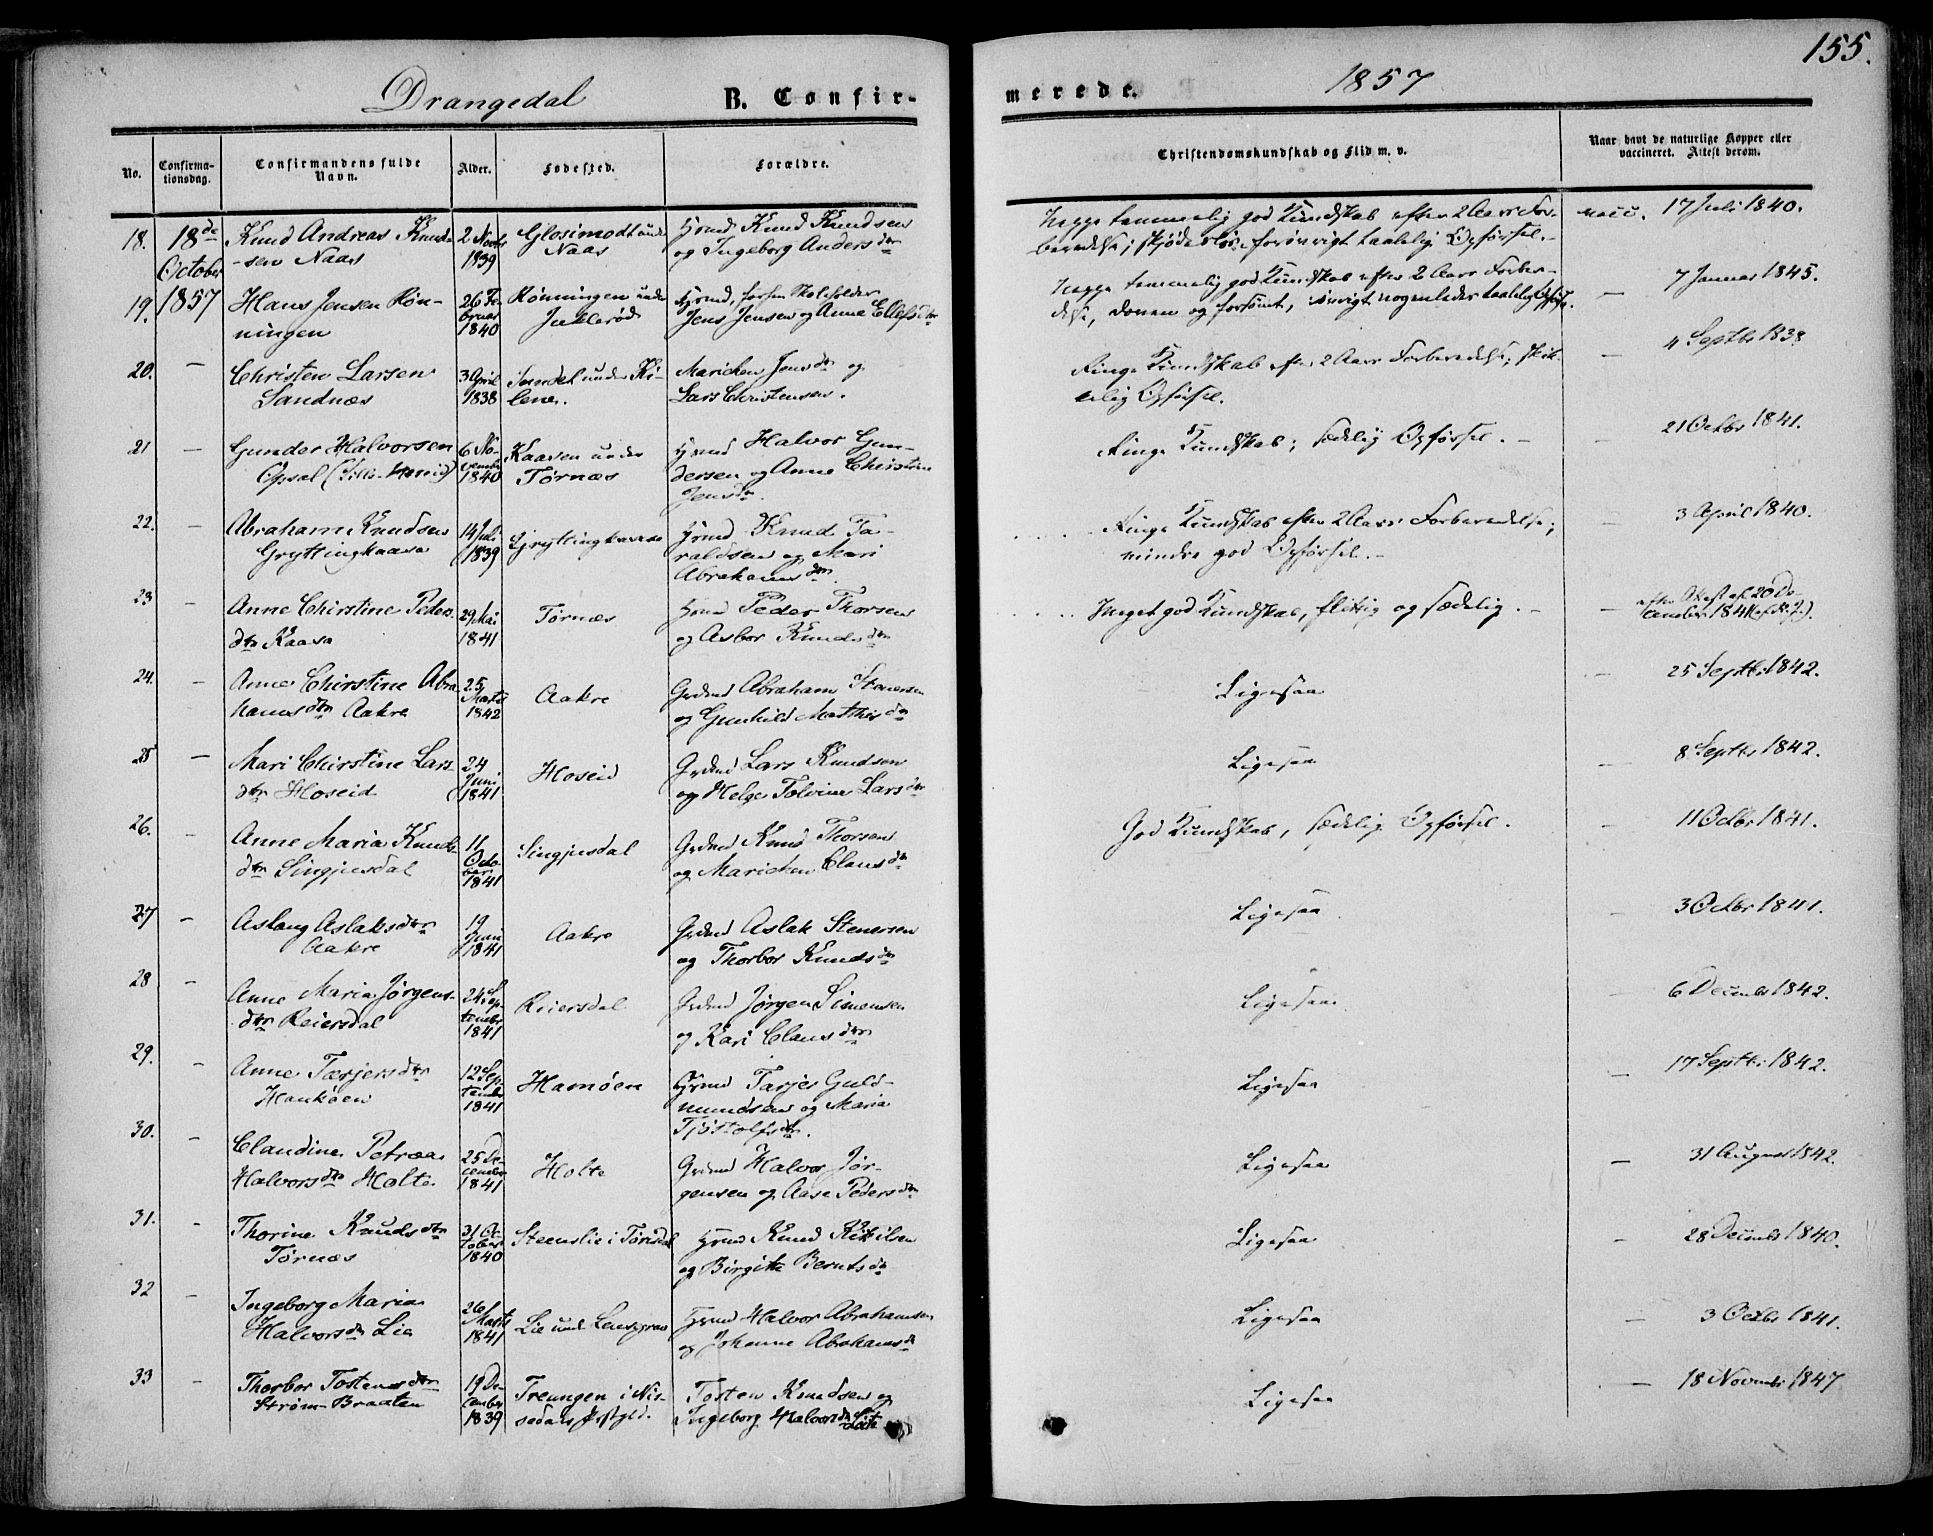 155.
Drangedal B. Confir-
merede. 1857
No. Confirma-
tionsdag. Confirmandens fulde
Navn. Alder. Fødested. Forældre. Christendomskundskab og Flid m. v. Naar havt de naturlige Kopper eller
vaccineret. Attest derom.
18. 18de
October
1857 Knud Andreas Knud-
sen Naas 2 Novbr
1839 Glosimodt under
Naas Hmd Knud Knudsen
og Ingeborg Andersdtr tammelig god Kundskab efter 2 Aars For-
beredelse; forøvrigt taalelig Opførsel. vacc. 17 Juli 1840.
19. Hans Jensen Røn-
ningen 26 Fe-
bruar
1840 Rønningen under
Hmd, Skoleholder
Jens Jensen og Anne tammelig god Kundskab efter 2 Aars Forbe-
delse, doven og forsømt, øvrigt nogenledes taalelig Opførsel. — 7 Januar 1845.
20. — Christen Larsen
Sandnæs 3 April
1838 under Ki-
lene. Marichen Jensdtr og
Lars Christensen. Ringe Kundskab efter 2 Aars Forberedelse; skik-
kelig Opførsel. — 4 Septbr 1838
21 — Gunder Halvorsen
Opsal 6 No-
vember
1840 Kaasen under
Tørnæs Hmd Halvor Gun-
dersen og Anne Chirstine
Jensdtr. Ringe Kundskab; sædelig Opførsel. — 21 Octbr 1841.
22. — Abraham Knudsen
Gryttingkaasa 14 Juli
1839 Gryttingkaasa Hmd Knud Ta-
raldsen og Mari
Abrahamsdtr. Ringe Kundskab efter 2 Aars Forberedelse;
mindre god Opførsel. — 3 April 1840.
23 — Anne Chirstine Peders-
dtr Kaasa 29 Mai
1841 Tørnæs Hmd Peder Thorsen
og Asbor Knudsdtr Meget god Kundskab, flittig og sædelig. — efter Attest af 20 De-
cember 1841
24. — Anne Chirstine Abra-
hamsdtr Aakre 25
Marts
1842 Aakre Grdmd Abraham Stenersen
og Gunhild Mathisdtr Ligesaa 25 Septbr 1842.
25 — Mari Chirstine Lars-
dtr Hoseid 24
Juni
1841 Hoseid Grdmd Lars Knudsen
og Helge Tolvine Larsdtr Ligesaa — 8 Septbr 1842.
26. — Anne Maria Knuds-
dtr Singjusdal 11
Octo-
ber
1841 Singjusdal Grdmd Knud Thorsen
og Marichen Clausdtr God Kundskab, sædelig Opførsel. — 11 Octbr 1841.
27 — Aslaug Aslaksdtr
Aakre 19
Juni
1841 Aakre Grdmd Aslak Stenersen
og Thorbor Knudsdtr Ligesaa — 3 Octbr 1841.
28 — Anne Maria Jørgens-
dtr Reiersdal 24 Sep-
tember
1841 Reiersdal Grdmd Jørgen Simensen
og Kari Clausdtr Ligesaa — 6 Decembr 1842.
29. — Anne Tarjersdtr
12 Sep-
tember
1841 Hamøen Hmd Tarjer Guld-
mundsen og Maria
Tjøstolfsdtr. Ligesaa — 17 Septbr 1842.
30. — Claudine Petræa
Halvorsdtr Holte 25 De-
cember
1841 Holte Grdmd Halvor Jør-
gensen og Aase Pedersdtr Ligesaa — 31 August 1842.
31. — Thorine Knudsdtr
Tørnæs 31 Oc-
tober
1840 Steenslie i Tørdal Hmd Knud Kittilsen
og Birgitte Berntsdtr Ligesaa — 28 Decembr 1840.
32 — Ingeborg Maria
Halvorsdtr Lie 26
Marts
1841 Lie under Hmd Halvor Abrahamsen
og Johanne Abrahamsdtr Ligesaa — 3 Octbr 1841.
33 — Thorbor Tostensdtr
Strøm-Braaten 19 De-
cember
1839 Treungen i Nis-
sedals Præstgjeld. Tosten Knudsen og
Ingeborg Halvorsdtr Ligesaa — 18 Novembr 1847